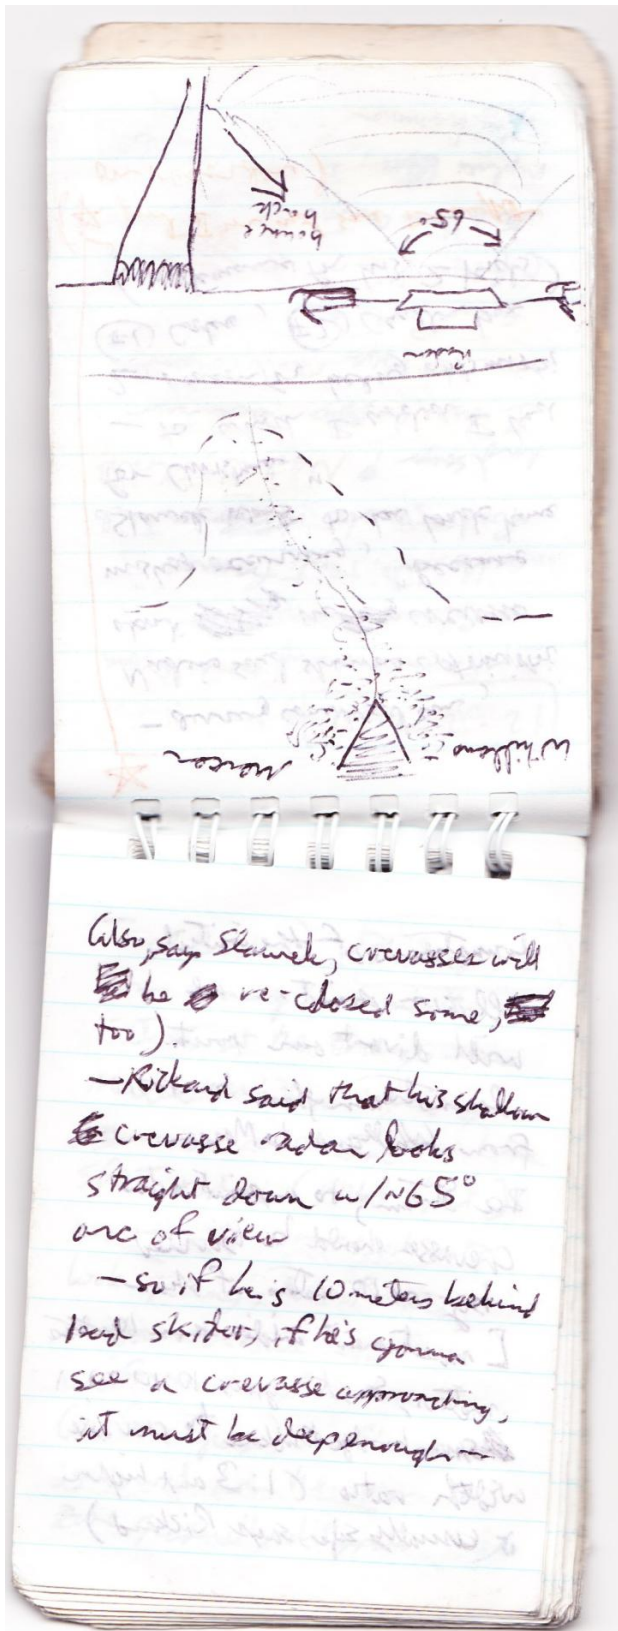 bounce
back
65°
Radar
Whillans
Mercer
(also, says Slawek, crevasses will
be re-closed some,
too).
— Rickard said that his shallow
crevasse radar looks
straight down w/~65°
arc of view
— so if he's 10 meters behind
lead skidoo, if he's gonna
see a crevasse approaching,
it must be deep enough —